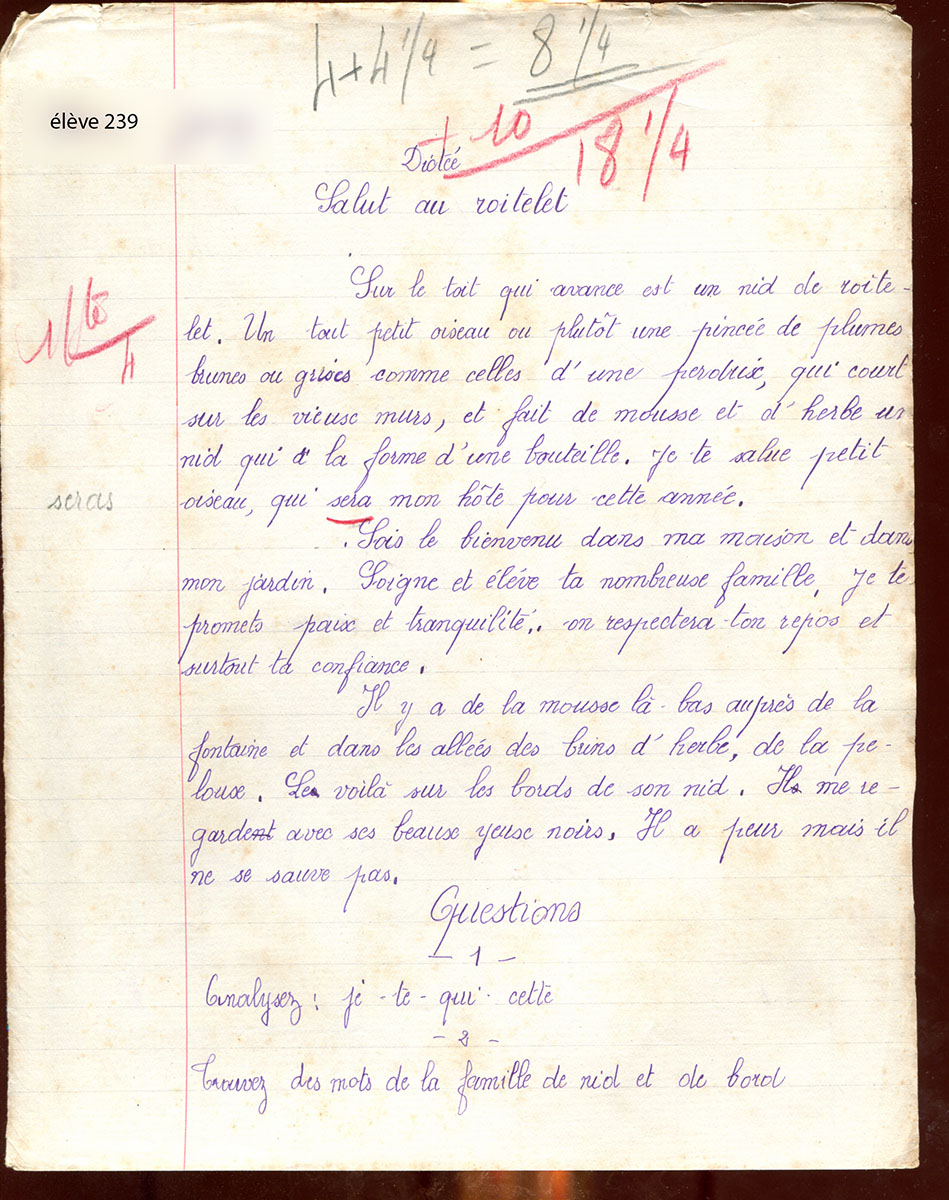 4 + 4 1/4 = 8 1/4
élève 239
+ 10
18 1/4
Dictée
Salut au roitelet
Sur le toit qui avance est un nid de roite-
let. Un tout petit oiseau ou plutôt une pincée de plumes
brunes ou grises comme celles d'une perdrix, qui court
sur les vieux murs, et fait de mousse et d'herbe un
nid qui a la forme d'une bouteille. Je te salue petit
oiseau, qui sera mon hôte pour cette année.
seras
Sois le bienvenu dans ma maison et dans
mon jardin. Soigne et élève ta nombreuse famille, Je te
promets paix et tranquilité. on respectera ton repos et
surtout ta confiance.
Il y a de la mousse là-bas auprès de la
fontaine et dans les alleés des brins d'herbe, de la pe-
louse. Le voilà sur les bords de son nid. Il me re-
garde avec ses beaux yeux noirs. Il a peur mais il
ne se sauve pas.
Questions
- 1 -
Analysez : je - te - qui - cette
- 2 -
Trouvez des mots de la famille de nid et de bord